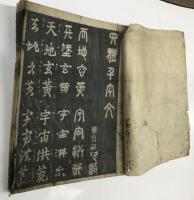 六體千字文
天地玄黃宇宙洪荒
天地玄黃宇宙洪荒
天地玄黃宇宙洪荒
天地玄黃宇宙洪荒